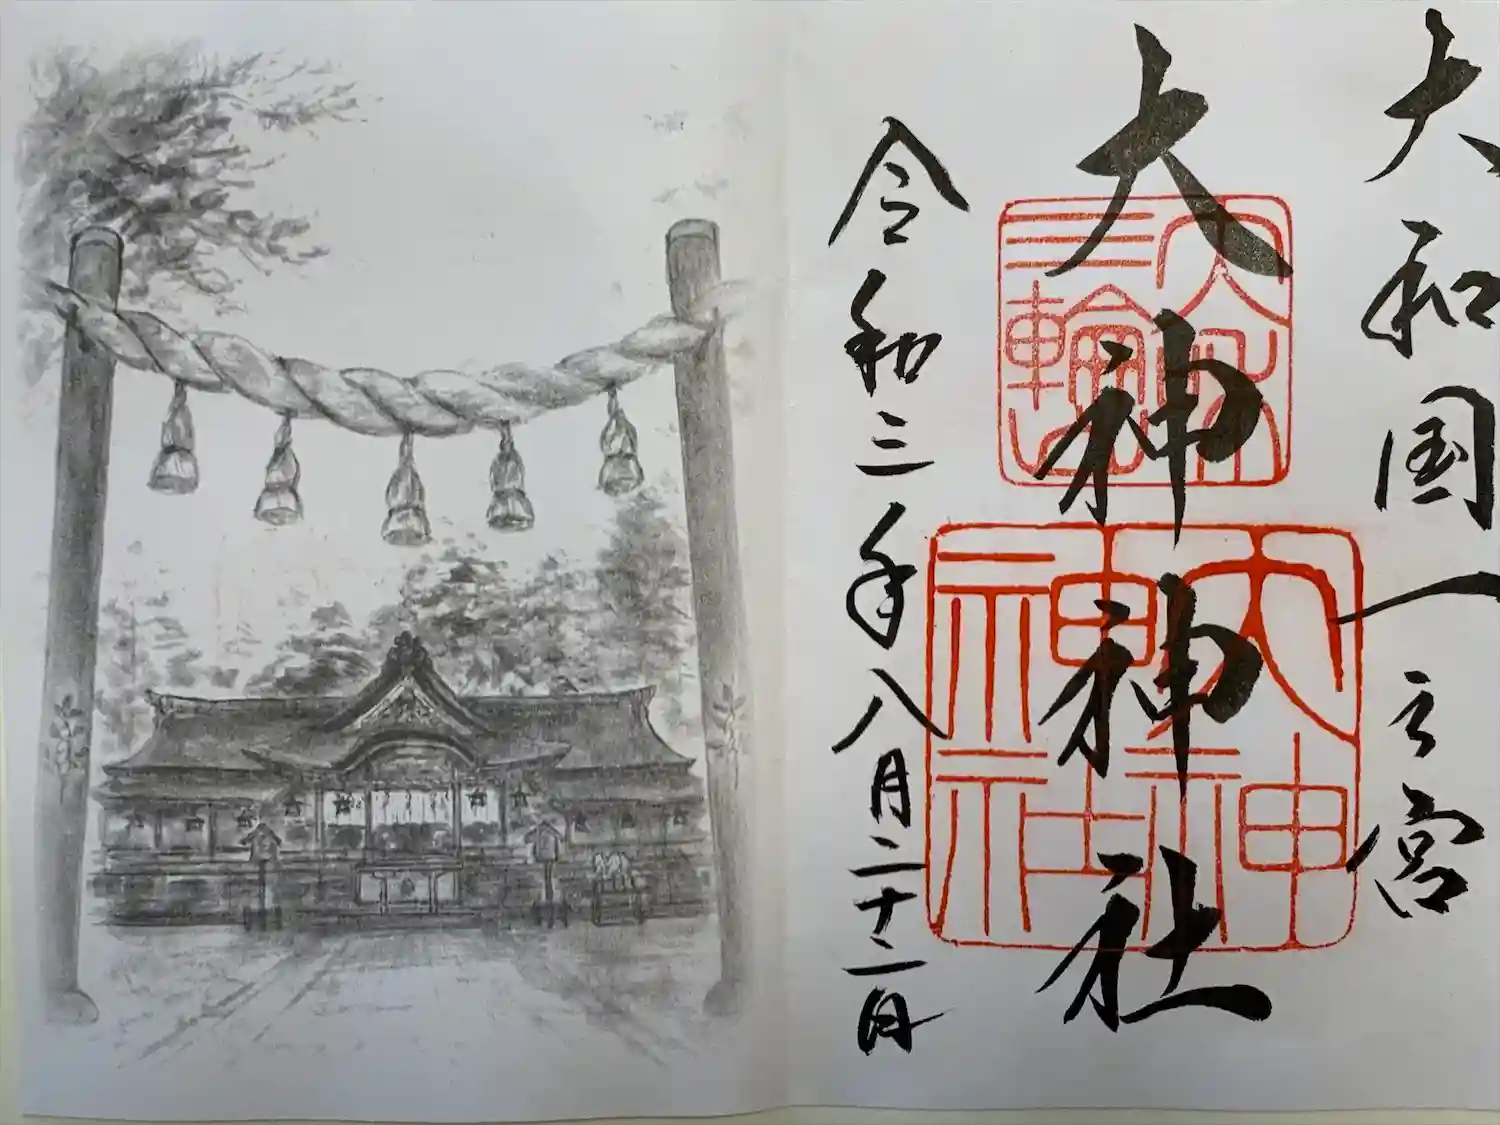 大和国一之宮
大神神社
令和三年八月二十二日
大神
神社